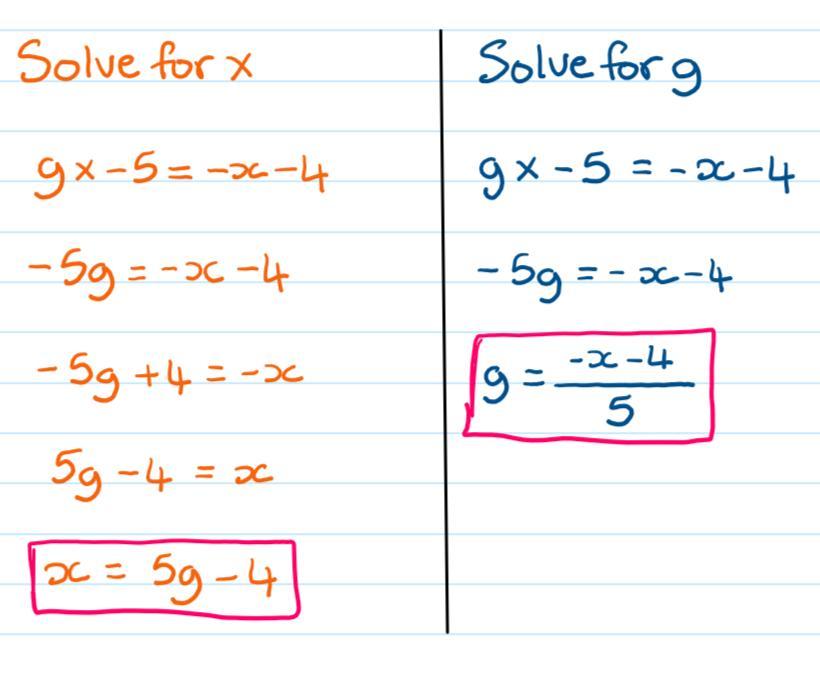 Solve for x
g × - 5 = -x - 4
-5g = -x - 4
-5g + 4 = -x
5g - 4 = x
x = 5g - 4
Solve for g
g × - 5 = -x - 4
-5g = -x - 4
g = \frac{-x - 4}{5}